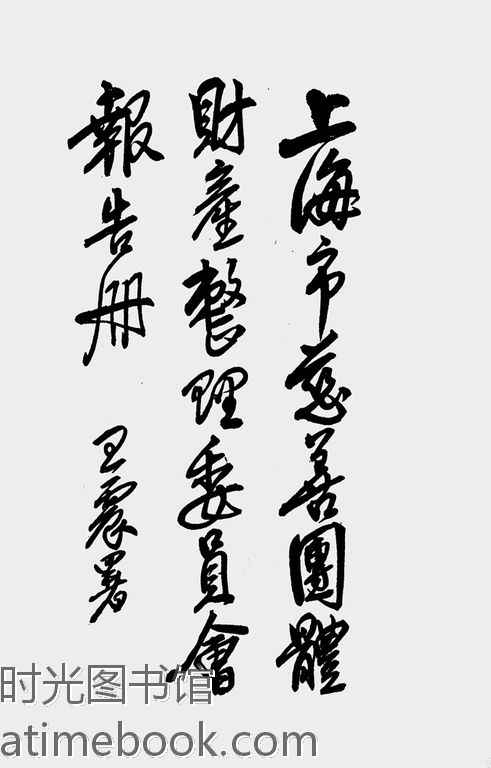 上海市慈善團體
財產整理委員會
報告册
王震署
时光图书馆
atimebook.com